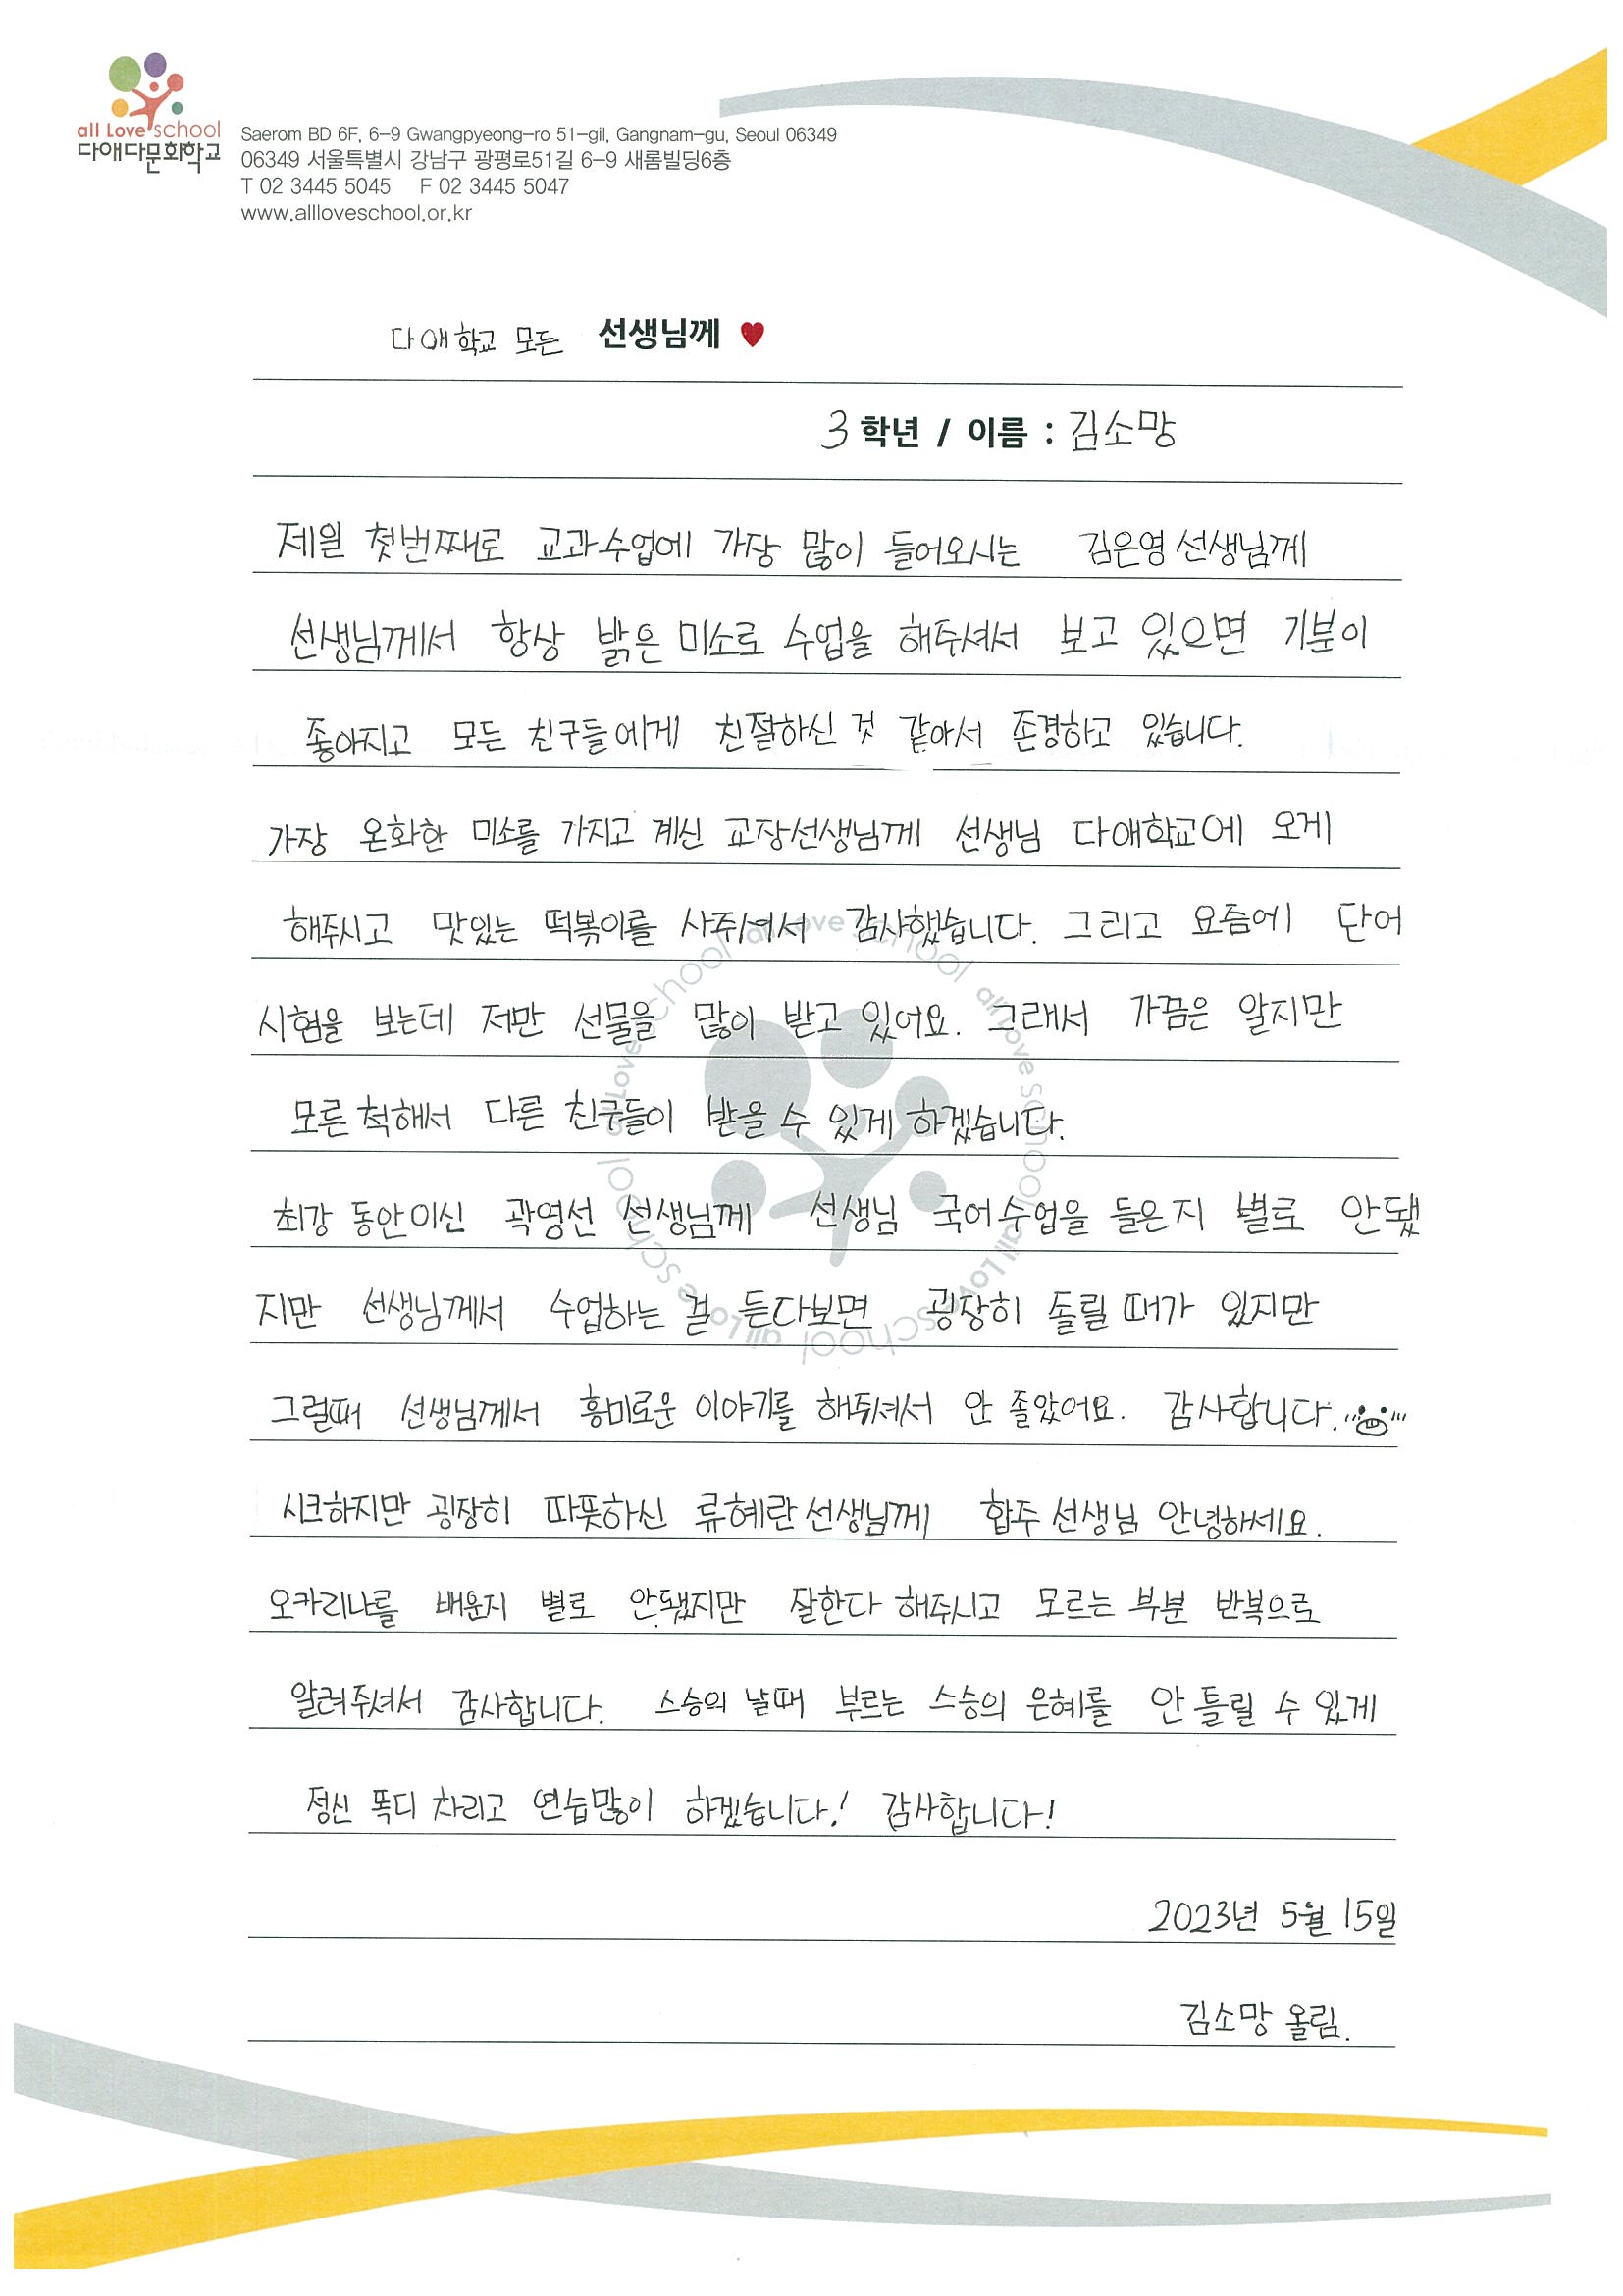 all Love school
다애다문화학교
Saerom BD 6F, 6-9 Gwangpyeong-ro 51-gil, Gangnam-gu, Seoul 06349
06349 서울특별시 강남구 광평로51길 6-9 새롬빌딩6층
T 02 3445 5045 F 02 3445 5047
www.allloveschool.or.kr
다애학교 모든 선생님께 ♥
3 학년 / 이름 : 김소망
제일 첫번째로 교과수업에 가장 많이 들어오시는 김은영 선생님께
선생님께서 항상 밝은 미소로 수업을 해주셔서 보고 있으면 기분이
좋아지고 모든 친구들에게 친절하신 것 같아서 존경하고 있습니다.
가장 온화한 미소를 가지고 계신 교장선생님께 선생님 다애학교에 오게
해주시고 맛있는 떡볶이를 사주셔서 감사했습니다. 그리고 요즘에 단어
시험을 보는데 저만 선물을 많이 받고 있어요. 그래서 가끔은 알지만
모른 척해서 다른 친구들이 받을 수 있게 하겠습니다.
최강 동안이신 곽영선 선생님께 선생님 국어수업을 들은지 별로 안됐
지만 선생님께서 수업하는 걸 듣다보면 굉장히 졸릴 때가 있지만
그럴때 선생님께서 흥미로운 이야기를 해주셔서 안 졸았어요. 감사합니다.
시크하지만 굉장히 따뜻하신 류혜란 선생님께 합주 선생님 안녕하세요.
오카리나를 배운지 별로 안됐지만 잘한다 해주시고 모르는 부분 반복으로
알려주셔서 감사합니다. 스승의 날때 부르는 스승의 은혜를 안 틀릴 수 있게
정신 똑디 차리고 연습많이 하겠습니다! 감사합니다!
2023년 5월 15일
김소망 올림.
all Love school all Love school all Love school all Love school